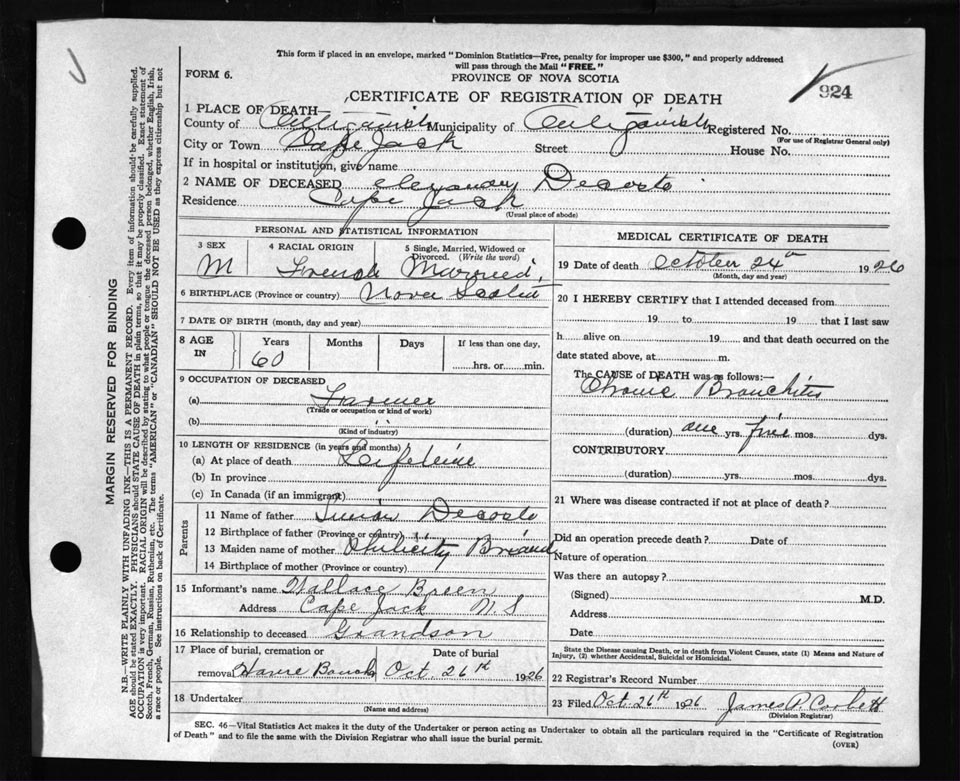 This form if placed in an envelope, marked "Dominion Statistics—Free, penalty for improper use $300," and properly addressed
will pass through the Mail "FREE."
FORM 6.
PROVINCE OF NOVA SCOTIA
CERTIFICATE OF REGISTRATION OF DEATH
924
1 PLACE OF DEATH—
County of Antigonish Municipality of Antigonish Registered No.
(For use of Registrar General only)
City or Town Cape Jack Street House No.
If in hospital or institution, give name
2 NAME OF DECEASED Alexander Decoste
Residence Cape Jack
(Usual place of abode)
PERSONAL AND STATISTICAL INFORMATION
3 SEX 4 RACIAL ORIGIN 5 Single, Married, Widowed or
Divorced. (Write the word)
M French Married
6 BIRTHPLACE (Province or country) Nova Scotia
7 DATE OF BIRTH (month, day and year)
8 AGE IN Years Months Days If less than one day,
60 hrs. or min.
9 OCCUPATION OF DECEASED
(a) Farmer
(Trade or occupation or kind of work)
(b) "
(Kind of industry)
10 LENGTH OF RESIDENCE (in years and months)
(a) At place of death Lifetime
(b) In province
(c) In Canada (if an immigrant)
Parents
11 Name of father Simon Decoste
12 Birthplace of father (Province or country)
13 Maiden name of mother Philicity Briand
14 Birthplace of mother (Province or country)
15 Informant's name Wallace Breen
Address Cape Jack N S
16 Relationship to deceased Grandson
17 Place of burial, cremation or Date of burial
removal Havre Bouche Oct. 26th 1926
18 Undertaker
(Name and address)
MEDICAL CERTIFICATE OF DEATH
19 Date of death October 24th 1926
(Month, day and year)
20 I HEREBY CERTIFY that I attended deceased from
19 to 19 that I last saw
h alive on 19 and that death occurred on the
date stated above, at m.
The CAUSE of DEATH was as follows:—
Chronic Bronchitis
(duration) one yrs. five mos. dys.
CONTRIBUTORY
(duration) yrs. mos. dys.
21 Where was disease contracted if not at place of death?
Did an operation precede death? Date of
Nature of operation
Was there an autopsy?
(Signed) M.D.
Address
Date
State the Disease causing Death, or in death from Violent Causes, state (1) Means and Nature of
Injury, (2) whether Accidental, Suicidal or Homicidal.
22 Registrar's Record Number
23 Filed Oct. 26th 1926 James P. Corbett
(Division Registrar)
SEC. 46—Vital Statistics Act makes it the duty of the Undertaker or person acting as Undertaker to obtain all the particulars required in the "Certificate of Registration
of Death" and to file the same with the Division Registrar who shall issue the burial permit.
(OVER)
MARGIN RESERVED FOR BINDING
N.B.—WRITE PLAINLY WITH UNFADING INK—THIS IS A PERMANENT RECORD. Every item of information should be carefully supplied.
AGE should be stated EXACTLY. PHYSICIANS should STATE CAUSE OF DEATH in plain terms, so that it may be properly classified. Exact statement of
OCCUPATION is very important. RACIAL ORIGIN will be described by stating to what people or tongue the deceased person belonged, whether English, Irish,
Scotch, French, German, Russian, Ruthenian, etc. The terms "AMERICAN" or "CANADIAN" SHOULD NOT BE USED as they express citizenship but not
a race or people. See instructions on back of Certificate.